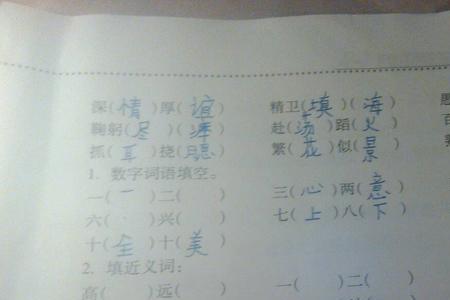 深(情)厚(谊) 精卫(填)(海)
鞠躬(尽)( ) 赴(汤)蹈(火)
抓(耳)挠(腮) 繁(花)似(景)
1. 数字词语填空。
一(一)二( ) 三(心)两(意)
六( )兴( ) 七(上)八(下)
十(全)十(美)
2. 填近义词:
高( )远( ) 一( )二( )